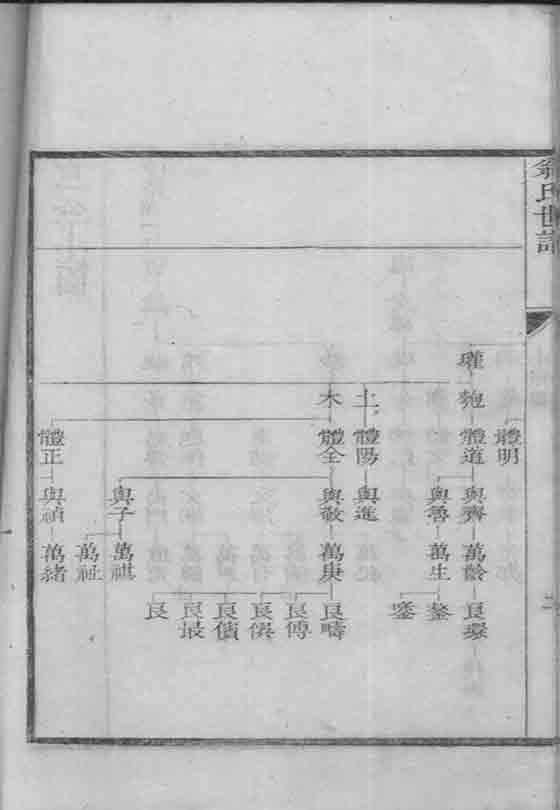 氏世譜
瓘
體明
體道
體陽
體全
體正
木
與齊
與魯
與進
與敬
與子
與禎
萬齡
萬生
萬庚
萬祺
萬祉
萬緒
良環
鋆
良疇
良傅
良儐
良最
良